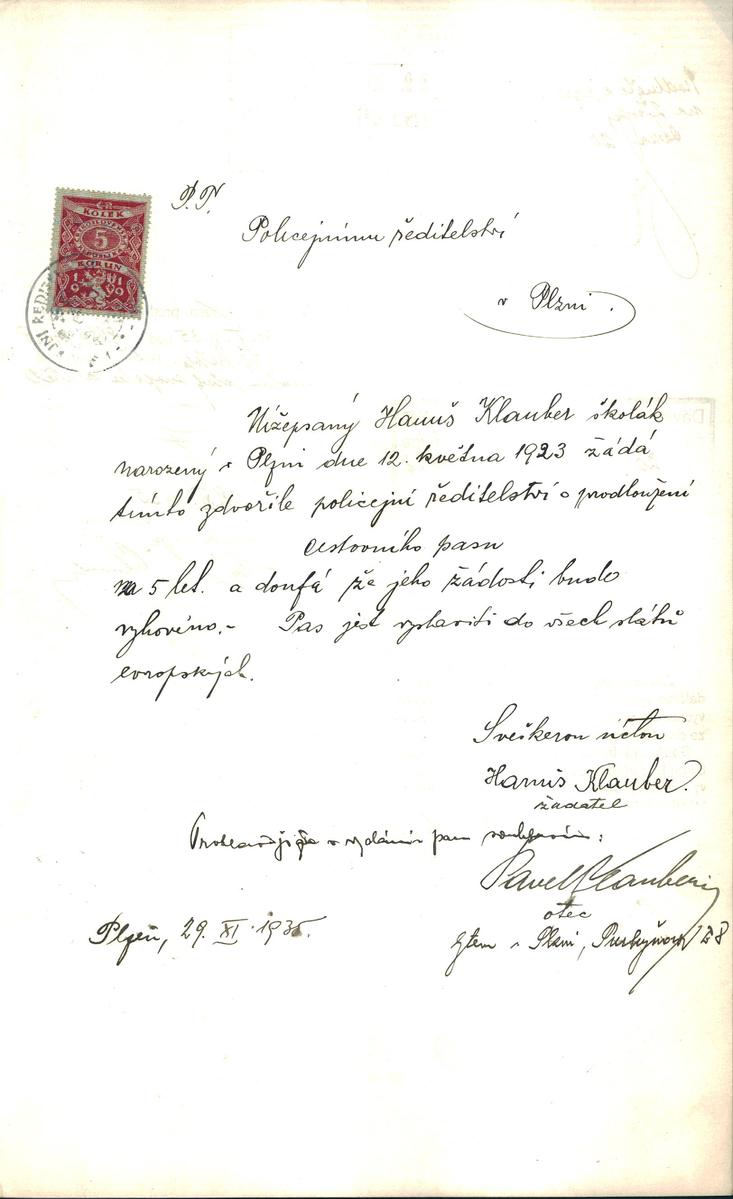 KOLEK
5
KORUN
P. T.
Policejnímu ředitelství
v Plzni.
Nížepsaný Hanuš Klauber školák
narozený v Plzni dne 12. května 1923 žádá
tímto zdvořile policejní ředitelství o prodloužení
cestovního pasu
na 5 let. a doufá že jeho žádosti bude
vyhověno.- Pas jest vystaviti do všech států
evropských.
S veškerou úctou
Hanuš Klauber.
žadatel
Prohlašuji že s vydáním pasu souhlasím:
Pavel Klauber
otec
Plzeň, 29. XI. 1935.
bytem v Plzni,